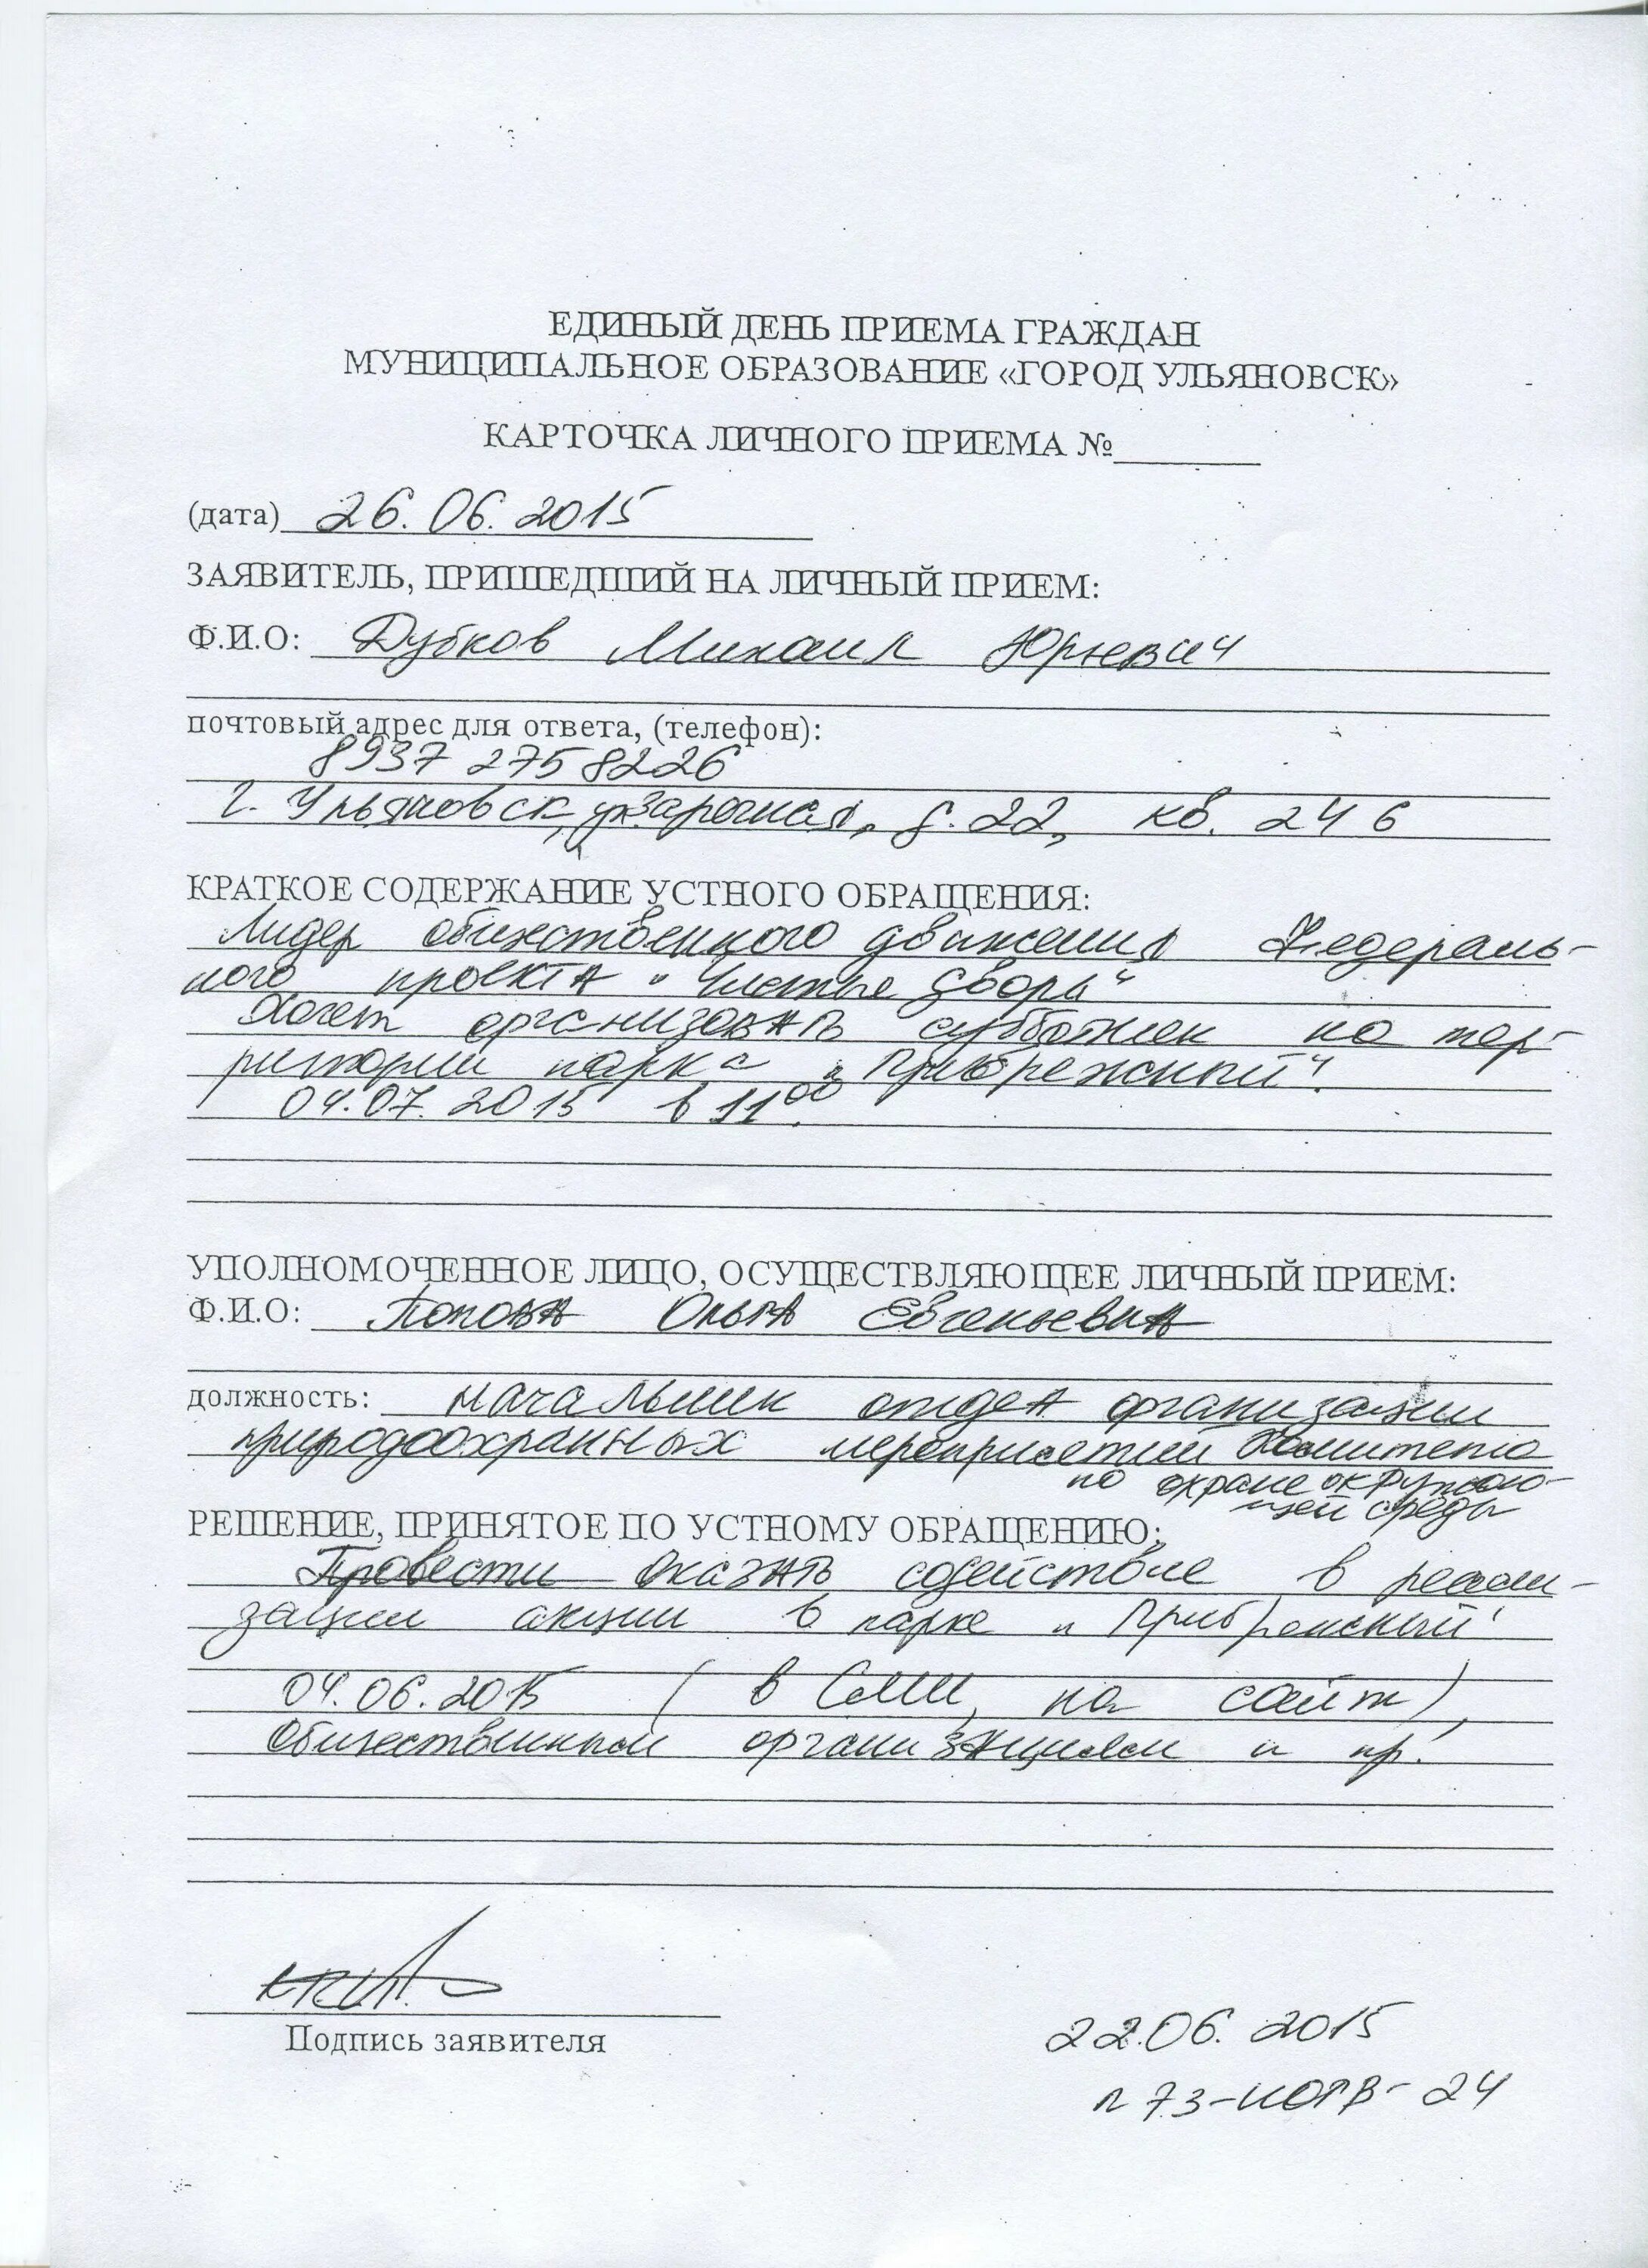 ЕДИНЫЙ ДЕНЬ ПРИЕМА ГРАЖДАН
МУНИЦИПАЛЬНОЕ ОБРАЗОВАНИЕ «ГОРОД УЛЬЯНОВСК»
КАРТОЧКА ЛИЧНОГО ПРИЕМА №
(дата) 26.06.2015
ЗАЯВИТЕЛЬ, ПРИШЕДШИЙ НА ЛИЧНЫЙ ПРИЕМ:
Ф.И.О: Дубков Михаил Юрьевич
почтовый адрес для ответа, (телефон):
8937 275 8226
г. Ульяновск, Заречная, д. 22, кв. 246
КРАТКОЕ СОДЕРЖАНИЕ УСТНОГО ОБРАЩЕНИЯ:
Лидер общественного движения Федераль-
ного проекта "Чистые дворы"
Хочет организовать субботник на тер-
ритории парка "Прибрежный".
04.07.2015 в 11 00.
УПОЛНОМОЧЕННОЕ ЛИЦО, ОСУЩЕСТВЛЯЮЩЕЕ ЛИЧНЫЙ ПРИЕМ:
Ф.И.О: Попова Ольга Евгеньевна
должность: начальник отдела организации
природоохранных мероприятий Комитета
по охране окружаю-
щей среды
РЕШЕНИЕ, ПРИНЯТОЕ ПО УСТНОМУ ОБРАЩЕНИЮ:
Провести Оказать содействие в реали-
зации акции в парке "Прибрежный"
04.06.2015 (в СМИ, на сайт),
Общественным организациям и пр.
Подпись заявителя
22.06.2015